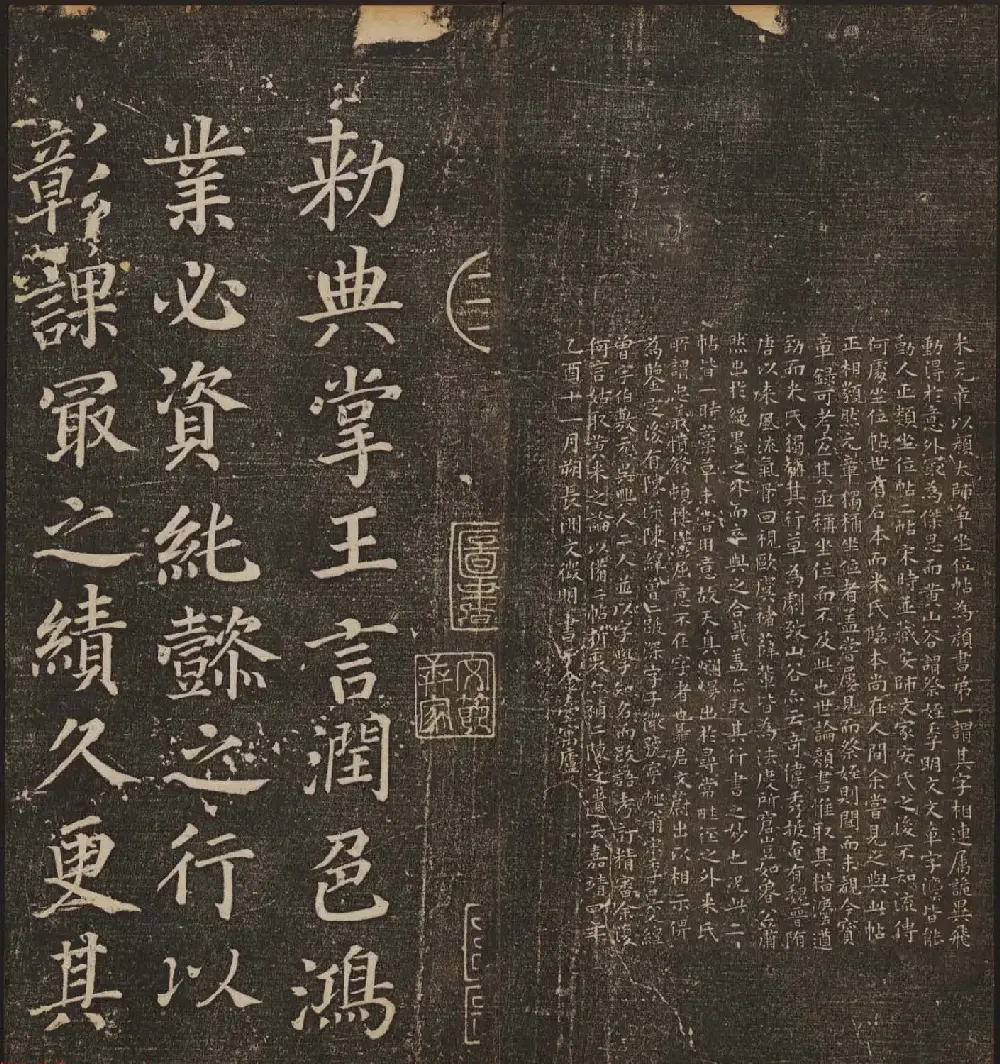 米元章以顏太師爭坐位帖為顏書第一謂其字相連屬詭異飛
動得於意外最為傑思而黃山谷謂祭姪季明文文章字法皆能
動人正類坐位帖二帖宋時並藏安師文家安氏之後不知流傳
何處坐位帖世有石本而米氏臨本尚在人間余嘗見之與此帖
正相類然元章獨稱坐位者蓋嘗屢見而祭姪則聞而未覩今寶
章録可考宜其亟稱坐位而不及此也世論顏書惟取其楷法遒
勁而米氏獨稱其行草為劇致山谷亦云奇偉秀拔奄有魏晉隋
唐以來風流氣骨回視歐虞褚薛輩皆為法度所窘豈如魯公蕭
然出於繩墨之外而卒與之合哉蓋亦取其行書之妙也況此二
帖皆一時藁草未嘗用意故天真爛慢出於尋常畦徑之外米氏
所謂忠義憤發頓挫鬱屈意不在字者也吳君文蔚出以相示俾
為鑒定之後有陳深陳繹曾二跋深字子微號寧極翁宋季吳人繹
曾字伯敷元吳興人二人並以字學知名而跋語考訂精審余復
何言姑取黃米之論以備二帖折衷亦陳之遺云嘉靖四年
乙酉十一月朔長洲文徵明書
勑典掌王言潤色鴻
業必資純懿之行以
彰課冣之績久更其